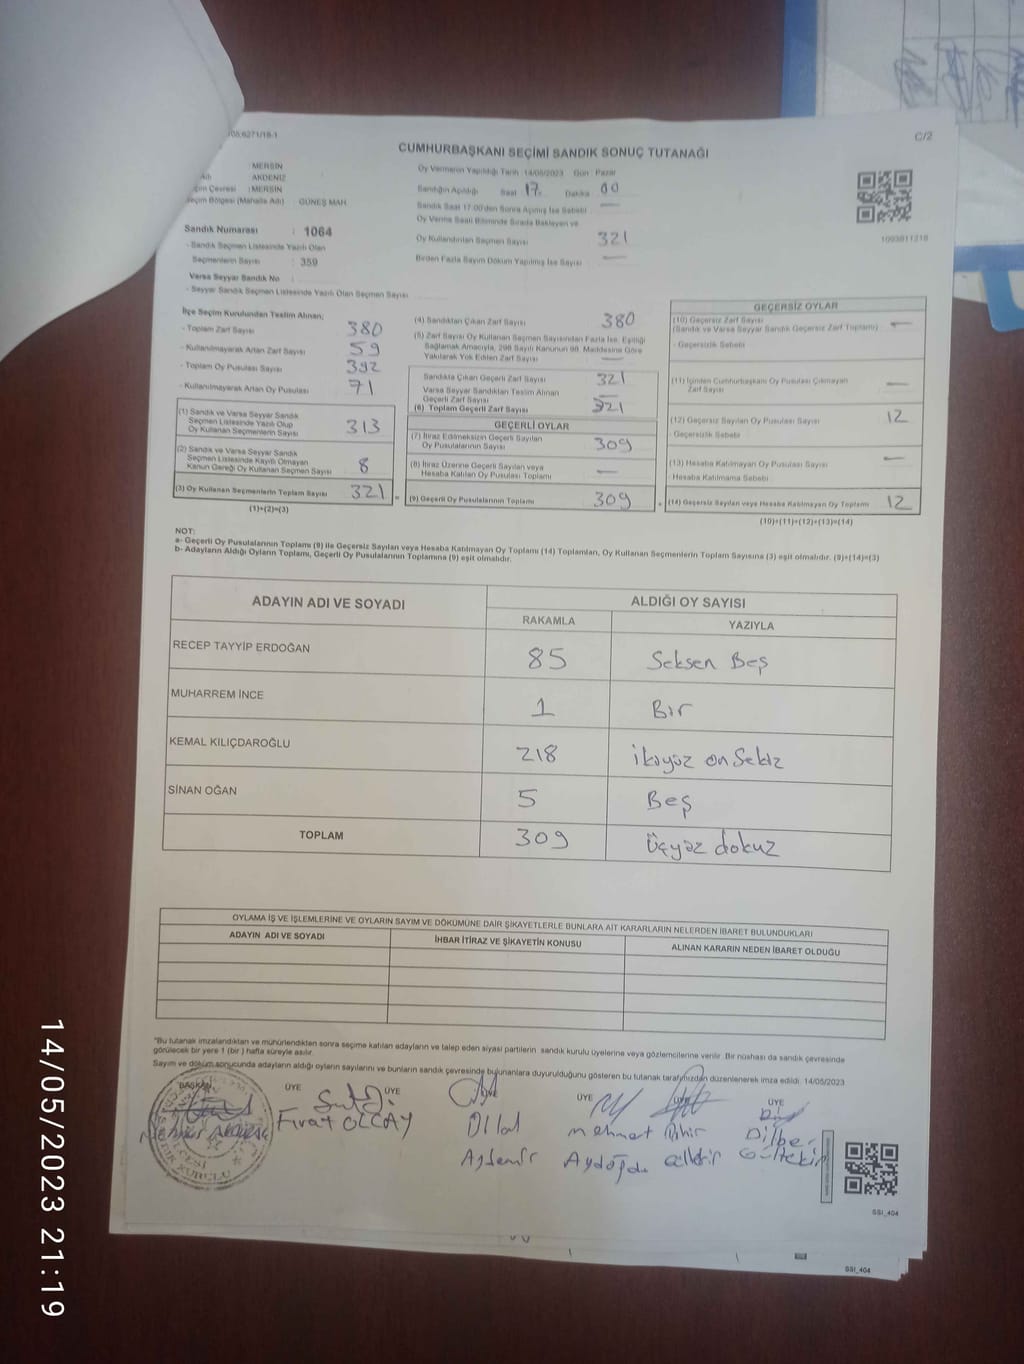 C/2
CUMHURBAŞKANI SEÇİMİ SANDIK SONUÇ TUTANAĞI
: MERSİN
AKDENİZ
: MERSİN
(Mahalle Adı) : GÜNEŞ MAH.
Oy Vermenin Yapıldığı Tarih 14/05/2023 Gün Pazar
Sandığın Açıldığı Saat 17. Dakika 00
Sandık Saat 17:00'den Sonra Açılmış İse Sebebi —
Oy Verme Saati Bitiminde Sırada Bekleyen ve
Oy Kullandırılan Seçmen Sayısı 321
Birden Fazla Sayım Döküm Yapılmış İse Sayısı —
1093811218
Sandık Numarası : 1064
- Sandık Seçmen Listesinde Yazılı Olan
Seçmenlerin Sayısı : 359
Varsa Seyyar Sandık No
- Seyyar Sandık Seçmen Listesinde Yazılı Olan Seçmen Sayısı
İlçe Seçim Kurulundan Teslim Alınan;
- Toplam Zarf Sayısı 380
- Kullanılmayarak Artan Zarf Sayısı 59
- Toplam Oy Pusulası Sayısı 392
- Kullanılmayarak Artan Oy Pusulası 71
(1) Sandık ve Varsa Seyyar Sandık
Seçmen Listesinde Yazılı Olup
Oy Kullanan Seçmenlerin Sayısı 313
(2) Sandık ve Varsa Seyyar Sandık
Seçmen Listesinde Kayıtlı Olmayan
Kanun Gereği Oy Kullanan Seçmen Sayısı 8
(3) Oy Kullanan Seçmenlerin Toplam Sayısı 321
(1)+(2)=(3)
(4) Sandıktan Çıkan Zarf Sayısı 380
(5) Zarf Sayısı Oy Kullanan Seçmen Sayısından Fazla İse, Eşitliği
Sağlamak Amacıyla, 298 Sayılı Kanunun 98. Maddesine Göre
Yakılarak Yok Edilen Zarf Sayısı —
Sandıkta Çıkan Geçerli Zarf Sayısı 321
Varsa Seyyar Sandıktan Teslim Alınan
Geçerli Zarf Sayısı —
(6) Toplam Geçerli Zarf Sayısı 321
GEÇERLİ OYLAR
(7) İtiraz Edilmeksizin Geçerli Sayılan
Oy Pusulalarının Sayısı 309
(8) İtiraz Üzerine Geçerli Sayılan veya
Hesaba Katılan Oy Pusulası Toplamı —
(9) Geçerli Oy Pusulalarının Toplamı 309
GEÇERSİZ OYLAR
(10) Geçersiz Zarf Sayısı
(Sandık ve Varsa Seyyar Sandık Geçersiz Zarf Toplamı) —
- Geçersizlik Sebebi
(11) İçinden Cumhurbaşkanı Oy Pusulası Çıkmayan
Zarf Sayısı —
(12) Geçersiz Sayılan Oy Pusulası Sayısı 12
- Geçersizlik Sebebi
(13) Hesaba Katılmayan Oy Pusulası Sayısı —
- Hesaba Katılmama Sebebi
(14) Geçersiz Sayılan veya Hesaba Katılmayan Oy Toplamı 12
(10)+(11)+(12)+(13)=(14)
NOT:
a- Geçerli Oy Pusulalarının Toplamı (9) ile Geçersiz Sayılan veya Hesaba Katılmayan Oy Toplamı (14) Toplamları, Oy Kullanan Seçmenlerin Toplam Sayısına (3) eşit olmalıdır. (9)+(14)=(3)
b- Adayların Aldığı Oyların Toplamı, Geçerli Oy Pusulalarının Toplamına (9) eşit olmalıdır.
ADAYIN ADI VE SOYADI ALDIĞI OY SAYISI
RAKAMLA YAZIYLA
RECEP TAYYİP ERDOĞAN 85 Seksen Beş
MUHARREM İNCE 1 Bir
KEMAL KILIÇDAROĞLU 218 ikiyüz on Sekiz
SİNAN OĞAN 5 Beş
TOPLAM 309 Üçyüz dokuz
OYLAMA İŞ VE İŞLEMLERİNE VE OYLARIN SAYIM VE DÖKÜMÜNE DAİR ŞİKAYETLERLE BUNLARA AİT KARARLARIN NELERDEN İBARET BULUNDUKLARI
ADAYIN ADI VE SOYADI İHBAR İTİRAZ VE ŞİKAYETİN KONUSU ALINAN KARARIN NEDEN İBARET OLDUĞU
*Bu tutanak imzalandıktan ve mühürlendikten sonra seçime katılan adayların ve talep eden siyasi partilerin sandık kurulu üyelerine veya gözlemcilerine verilir. Bir nüshası da sandık çevresinde
görülecek bir yere 1 (bir) hafta süreyle asılır.
Sayım ve döküm sonucunda adayların aldığı oyların sayılarını ve bunların sandık çevresinde bulunanlara duyurulduğunu gösteren bu tutanak tarafımızdan düzenlenerek imza edildi. 14/05/2023
BAŞKAN ÜYE ÜYE ÜYE ÜYE ÜYE
Fırat OLCAY
Mehmet Aydoğdu
Dilber Gültekin
SSI_404
SSI_404
14/05/2023 21:19